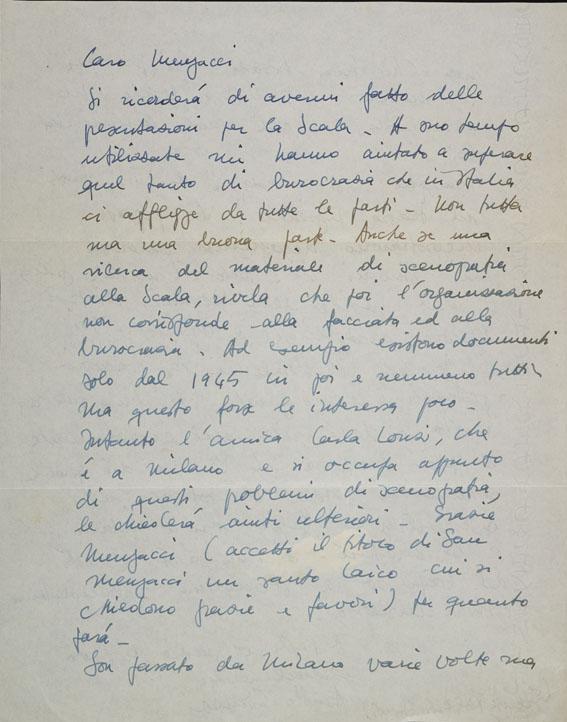 Caro Menzacci
Si ricorderá di avermi fatto delle
pesentazioni per la Scala - A suo tempo
utilizzate mi hanno aiutato a superare
quel tanto di burocrazia che in Italia
ci affligge da tutte le parti - Non tutta
ma una buona parte. Anche se una
ricerca del materiale di scenografia
alla Scala, rivela che poi l'organizzazione
non corrisponde alla facciata ed alla
burocrazia. Ad esempio esistono documenti
solo dal 1945 in poi e nemmeno tutti
ma questo forse le interessa poco -
Intanto l'amica Carla Lonzi, che
é a Milano e si occupa appunto
di questi problemi di scenografia,
le chiederá aiuti ulteriori - Grazie
Menzacci (accetti il titolo di San
Menzacci un santo laico cui si
chiedono grazie e favori) per quanto
fará -
Son passato da Milano varie volte ma